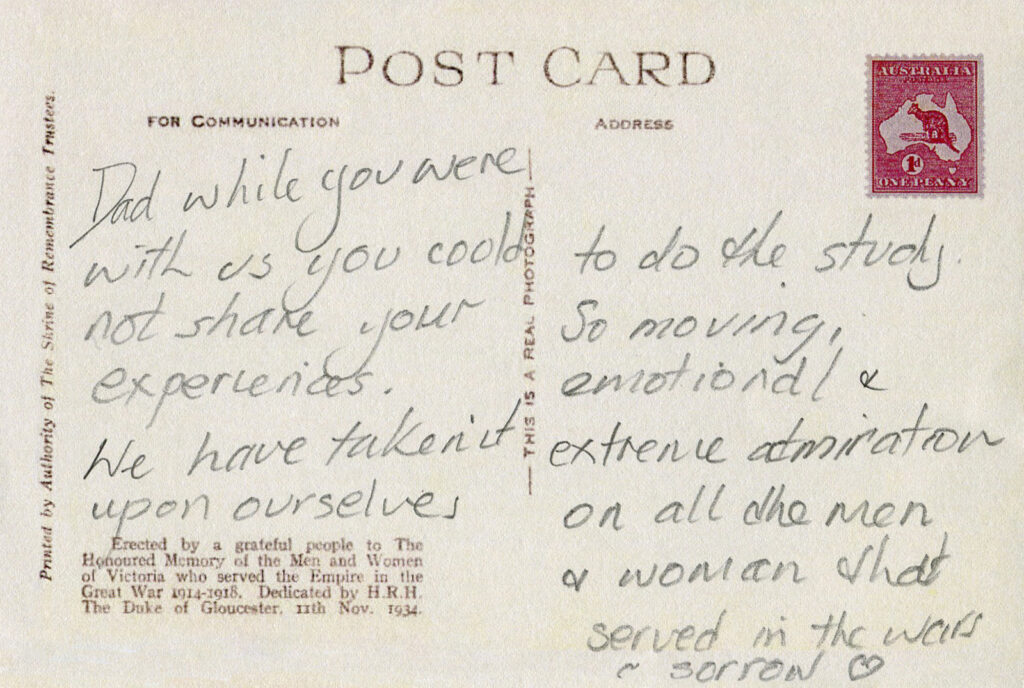 POST CARD
FOR COMMUNICATION
ADDRESS
AUSTRALIA
POSTAGE
1d
ONE PENNY
Printed by Authority of The Shrine of Remembrance Trustees.
Dad while you were
with us you could
not share your
experiences.
We have taken it
upon ourselves
THIS IS A REAL PHOTOGRAPH
to do the study.
So moving,
emotional &
extreme admiration
on all the men
& woman that
served in the wars
~ sorrow ♡
Erected by a grateful people to The
Honoured Memory of the Men and Women
of Victoria who served the Empire in the
Great War 1914-1918. Dedicated by H.R.H.
The Duke of Gloucester, 11th Nov. 1934.